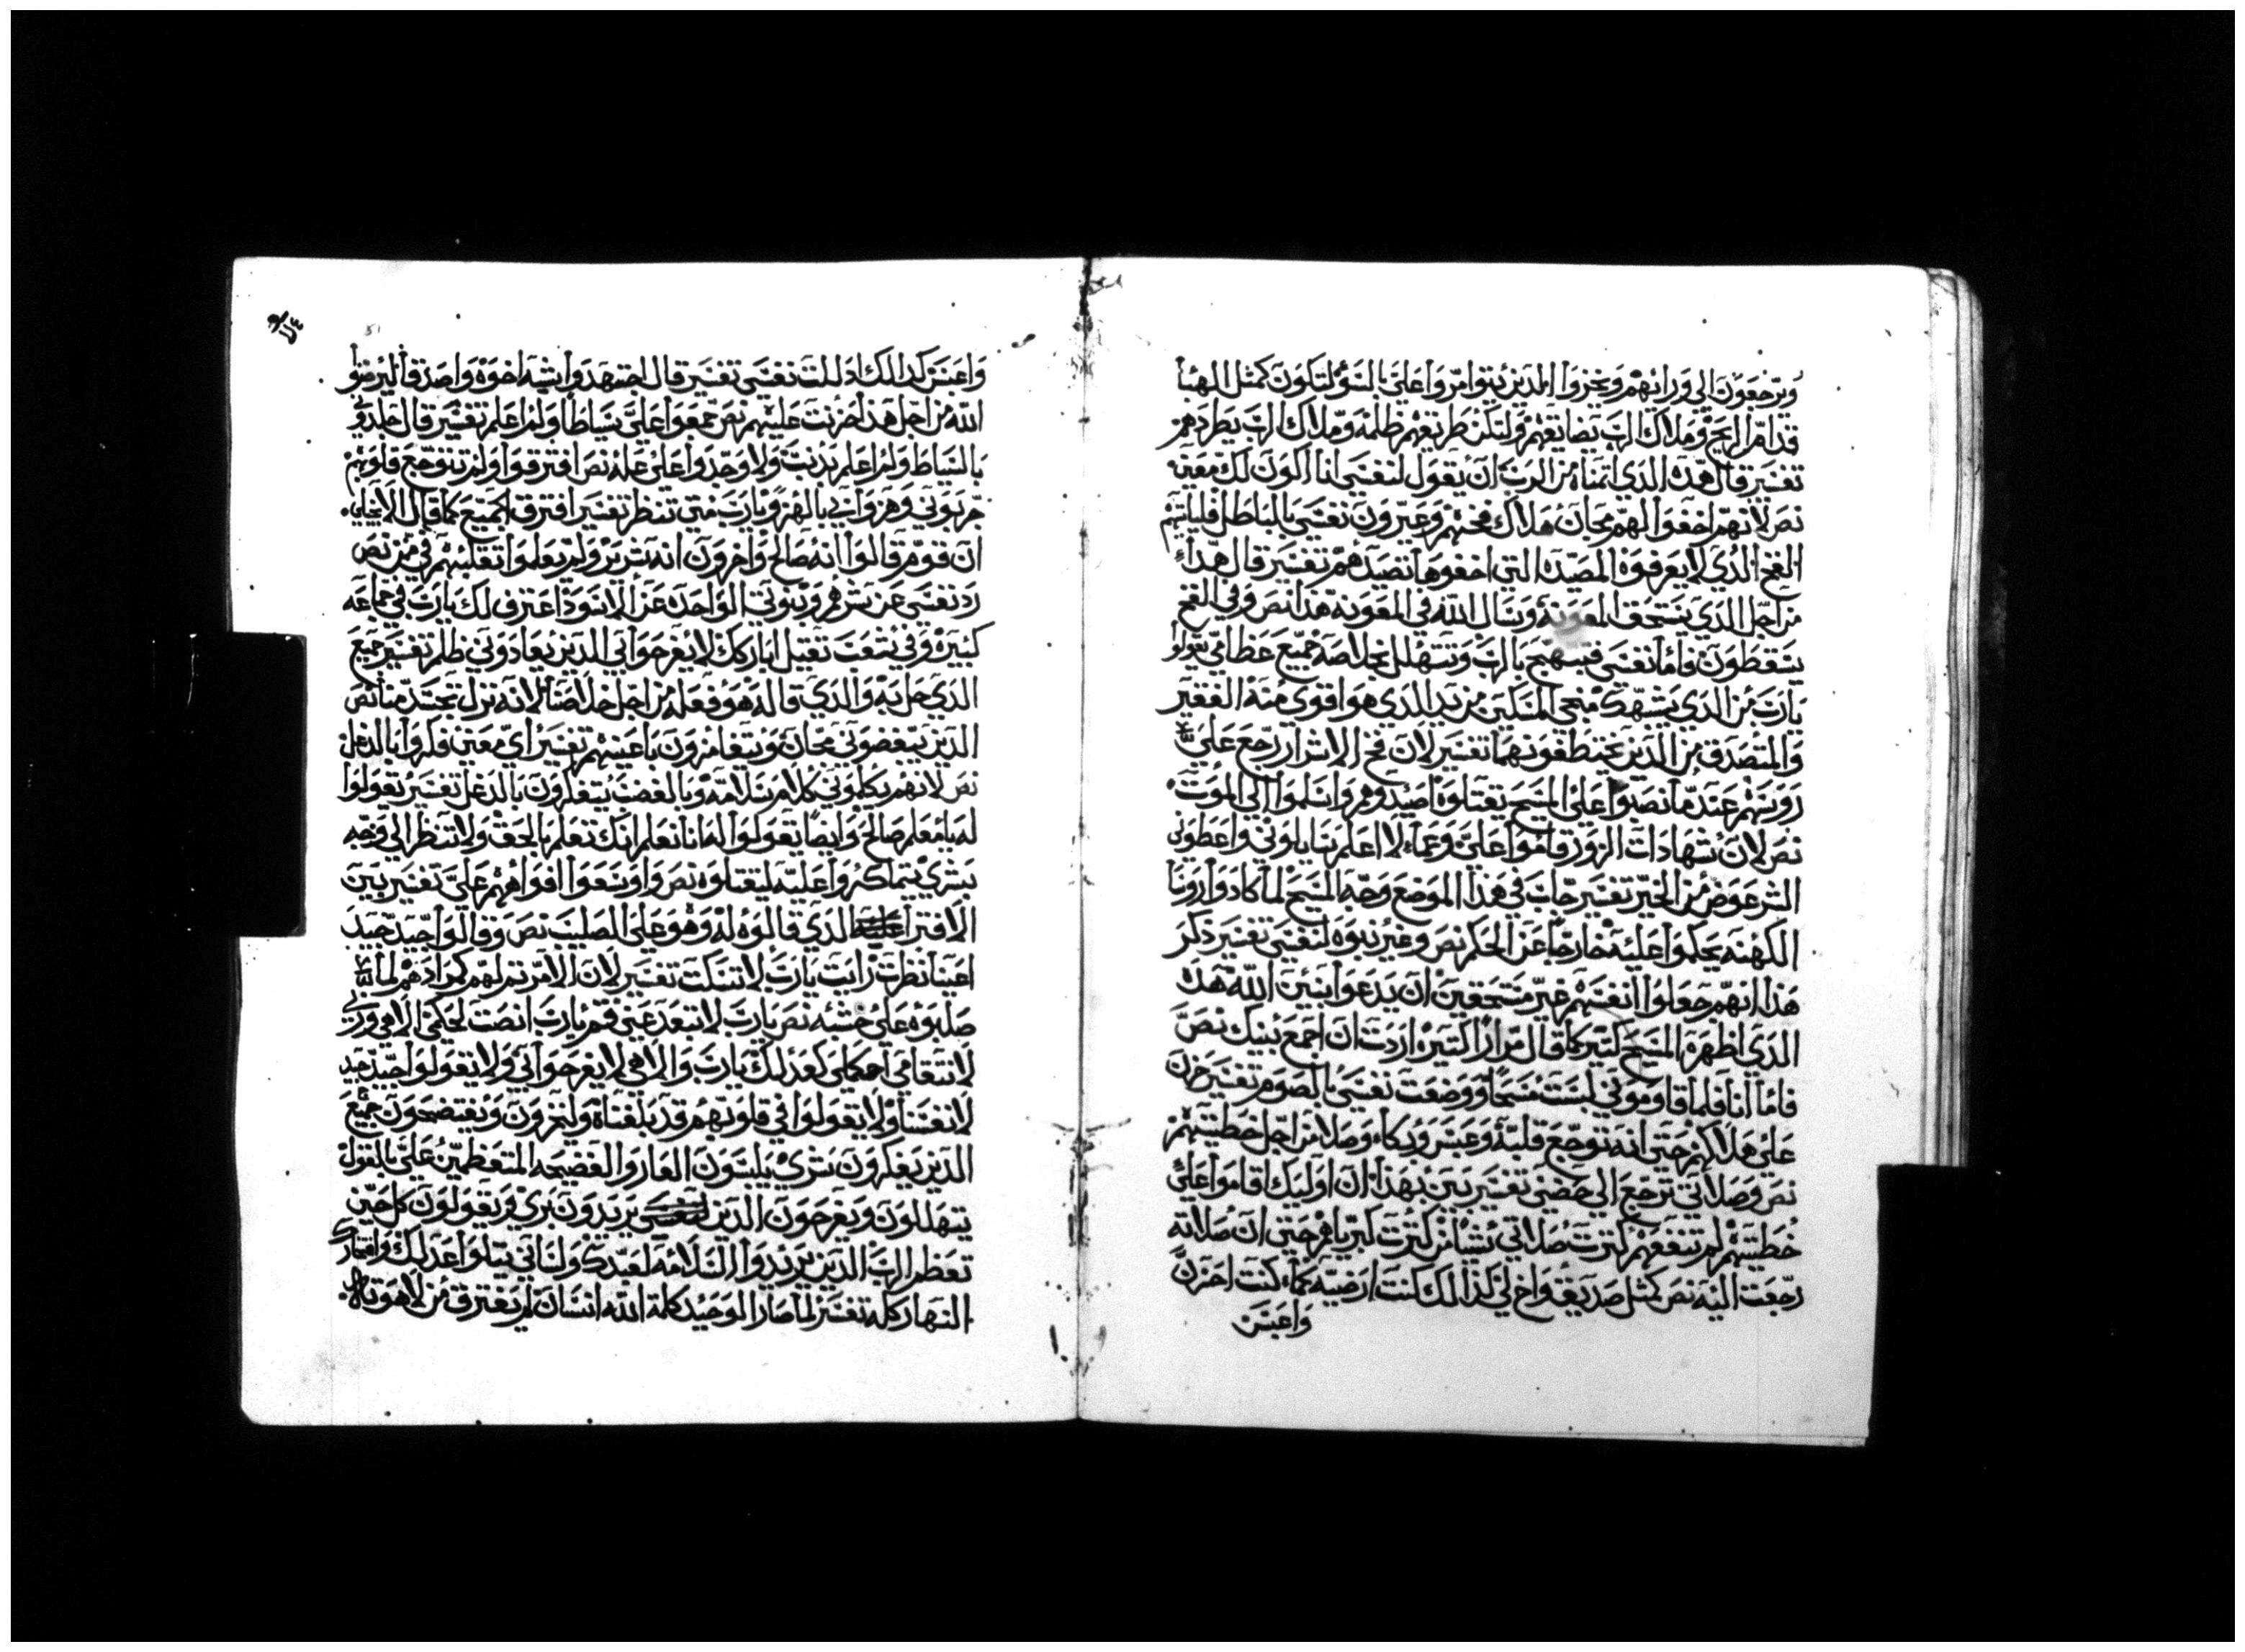 ويرجعون الي ورائهم ويخزوا الدين يتوامروا علي بالسؤ لتكون كمثل الهبا
قدام الريح وملاك الرب يضايقهم ولتكن طريقهم ظلمه وملاك الرب يطردهم
تفسير قال هده الدي اتمناه من الرب ان يقول لنفسي انا اكون لك معين
نص لانهم اخفوا لهم مجان هلاك فخهم وعيرون نفسي بالباطل فلياتيهم
الفخ الدي لا يعرفوه المصيده التي اخفوها تصيدهم تفسير قال هدا
من اجل الدي يستحق المعونه وسال الله في المعونه هدا نص وفي الفخ
يسقطون فاما نفسي فتبتهج بالرب وتتهلل بخلاصه جميع عظامي تقولوا
يارب من الدي يشبهك منجي المسكين من يد الدي هو اقوي منه الفقير
والمتصدق من الدين يختطفونهما تفسير لان فخ الاشرار رجع علي
روسهم عندما نصبوا علي المسيح يقتلوه اصيدوهم واسلموا الي الموت
نص لان شهادات الزور قاموا علي وعما لا اعلم سايلوني واعطوني
الشر عوض من الخير تفسير جاب في هدا الموضع وجه المسيح لما كادوا روسا
الكهنه يحكموا عليه خارجا عن الحكم نص وغير بنوه لنفسي تفسير دكر
هدا انهم جعلوا انفسهم غير مستحقين ان يدعوا بنين الله هدا
الدي اظهره المسيح كتير كما قال مرارا كتيره اردت ان اجمع بنيك نص
فاما انا فلما قاوموني لبست مسحا ووضعت نفسي بالصوم تفسير حزن
علي هلاكهم حتي انه توجع قلبه وعبس وبكاء وصلا من اجل خطيتهم
نص وصلاتي ترجع الي حضني تفسير بين بهدا ان اوليك اقاموا علي
خطيتهم لم تنفعهم كترت صلاتي شيا من كترت كبرياهم حتي ان صلاته
رجعت اليه نص كمثل صديق واخ لي كذالك كنت ارضيه كما كنت احزن
واعبس
واعبس كدالك ادللت نفسي تفسير قال اجتهدوا بشبه اخوه واصدقا ليرضوا
الله من اجل هدا حزنت عليهم نص جمعوا علي سياطا ولم اعلم تفسير قال جلدوني
بالسياط ولم اعلم بدنب ولا وجدوا علي عله نص افترقوا ولم تتوجع قلوبهم
جربوني وهزوا بي بالهزو يارب متي تنظر تفسير افترق الجميع كما قال الانجيلي
ان قوم قالوا انه صالح واخرون انه شرير ولم يعلموا تقلبهم في نص
رد نفسي عن شرهم وبنوتي الواحده عن الاسود اعترف لك يارب في جماعه
كبيره وفي شعب تقيل اباركك لا يفرحوا بي الدين يعادوني ظلم تفسير جميع
الدي حل به والدي قاله هو فعله من اجل خلاصنا لانه نزل تجسد منا نص
الدين يبغضوني مجان ويتغامزون باعينهم تفسير اي معين فكروا بالدغل
نص لانهم يكلموني كلام سلامه وبالغضب يتفكرون بالدغل تفسير يقولوا
له يا معلم صالح وايضا يقولوا له انا نعلم انك تعلم بالحق ولا تنظر الي وجه
بشري يتماكروا عليه ليقتلوه نص واوسعوا افواههم علي تفسير بين
الافترا الدي قالوه له وهو علي الصليب نص وقالوا جيد جيد
اعيننا نظرت رايت يارب لا تسكت تفسير لان الامر تم لهم كمرادهم لما
صلبوه علي خشبه نص يارب لا تبعد عني قم يارب انصت لحكمي الاهي وربي
لا تتغامي احكم لي كعدلك يارب والاهي لا يفرحوا بي ولا يقولوا جيد جيد
لانفسنا ولا يقولوا في قلوبهم قد بلغناه وليخزون ويفتضحون جميع
الدين يفكرون بشري يلبسون العار والفضيحه المتعظمين علي بالقول
يتهللون ويفرحون الدين يريدون بري ويقولون كل حين
تعظم الرب الدين يريدوا السلامه لعبدك ولساني يتلوا عدلك وامتداحك
النهار كله تفسير لما صار الوحيد كلمة الله انسان لم يفترق من لاهوته